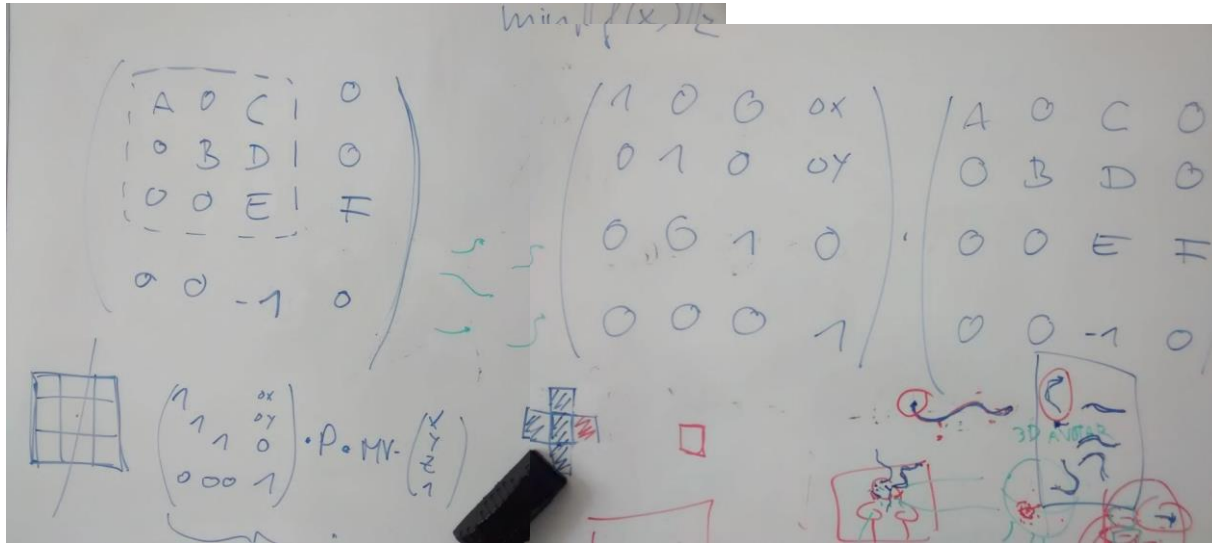 min ||f(x)||2
A 0 C 0
0 B D 0
0 0 E F
0 0 -1 0
1 0 0 ΔX
0 1 0 ΔY
0 0 1 0
0 0 0 1
·
A 0 C 0
0 B D 0
0 0 E F
0 0 -1 0
1 ΔX
1 ΔY
1 0
0 0 0 1
· P · MV ·
X
Y
Z
1
3D AVATAR